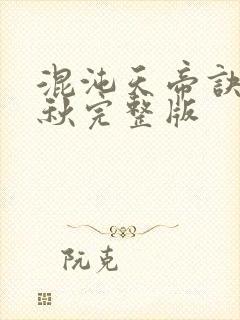 混沌天帝訣
秋完整版
阮克